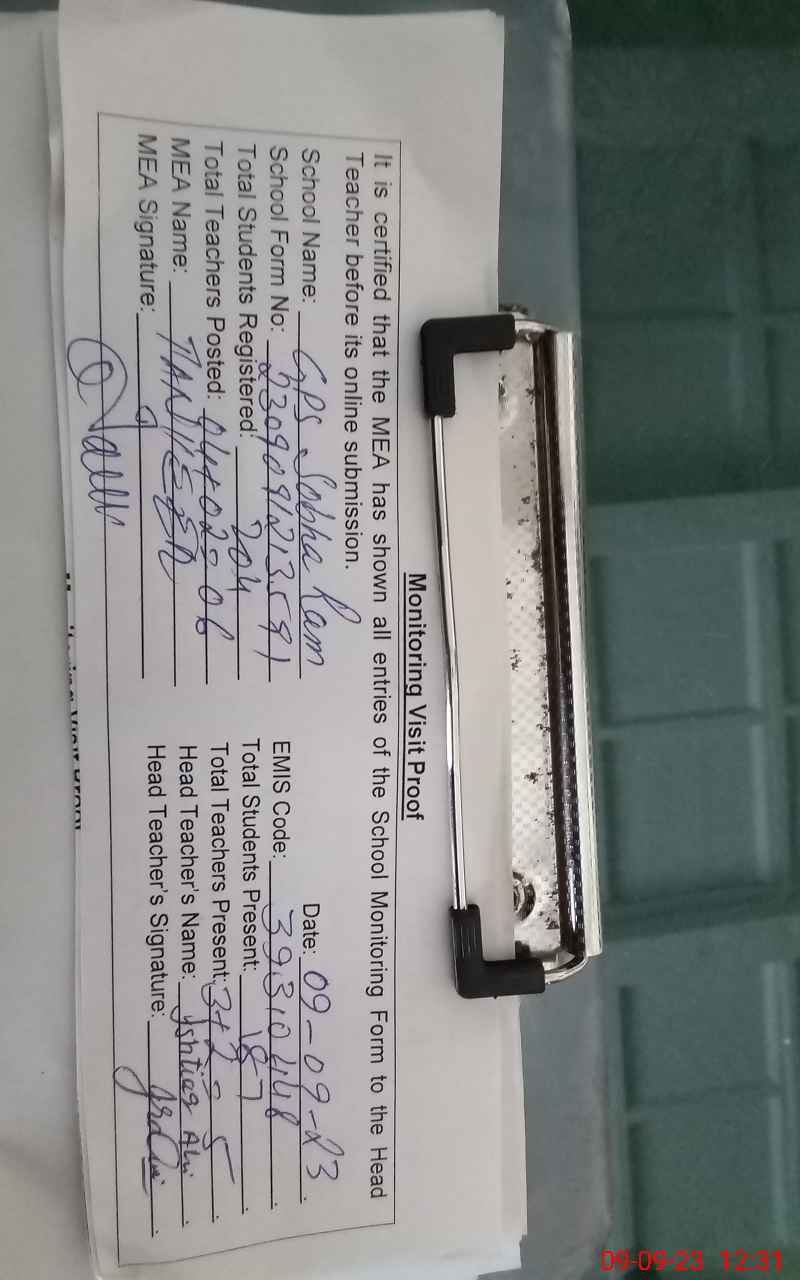 Monitoring Visit Proof
It is certified that the MEA has shown all entries of the School Monitoring Form to the Head
Teacher before its online submission.
School Name: GPS Sobha Ram Date: 09-09-23.
School Form No: EMIS Code: 39310448.
Total Students Registered: 204 Total Students Present: 187.
Total Teachers Posted: 04+02=06 Total Teachers Present: 3+2=5.
MEA Name: TANVEER Head Teacher's Name: Ishtiaq Ali.
MEA Signature: Head Teacher's Signature:
09-09-23 12:31